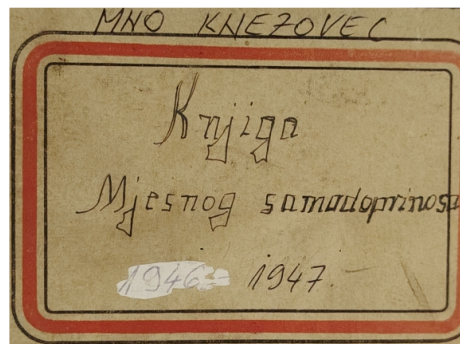 MNO KNEŽOVEC
Knjiga
Mjesnog samodoprinosa
1946- 1947.-